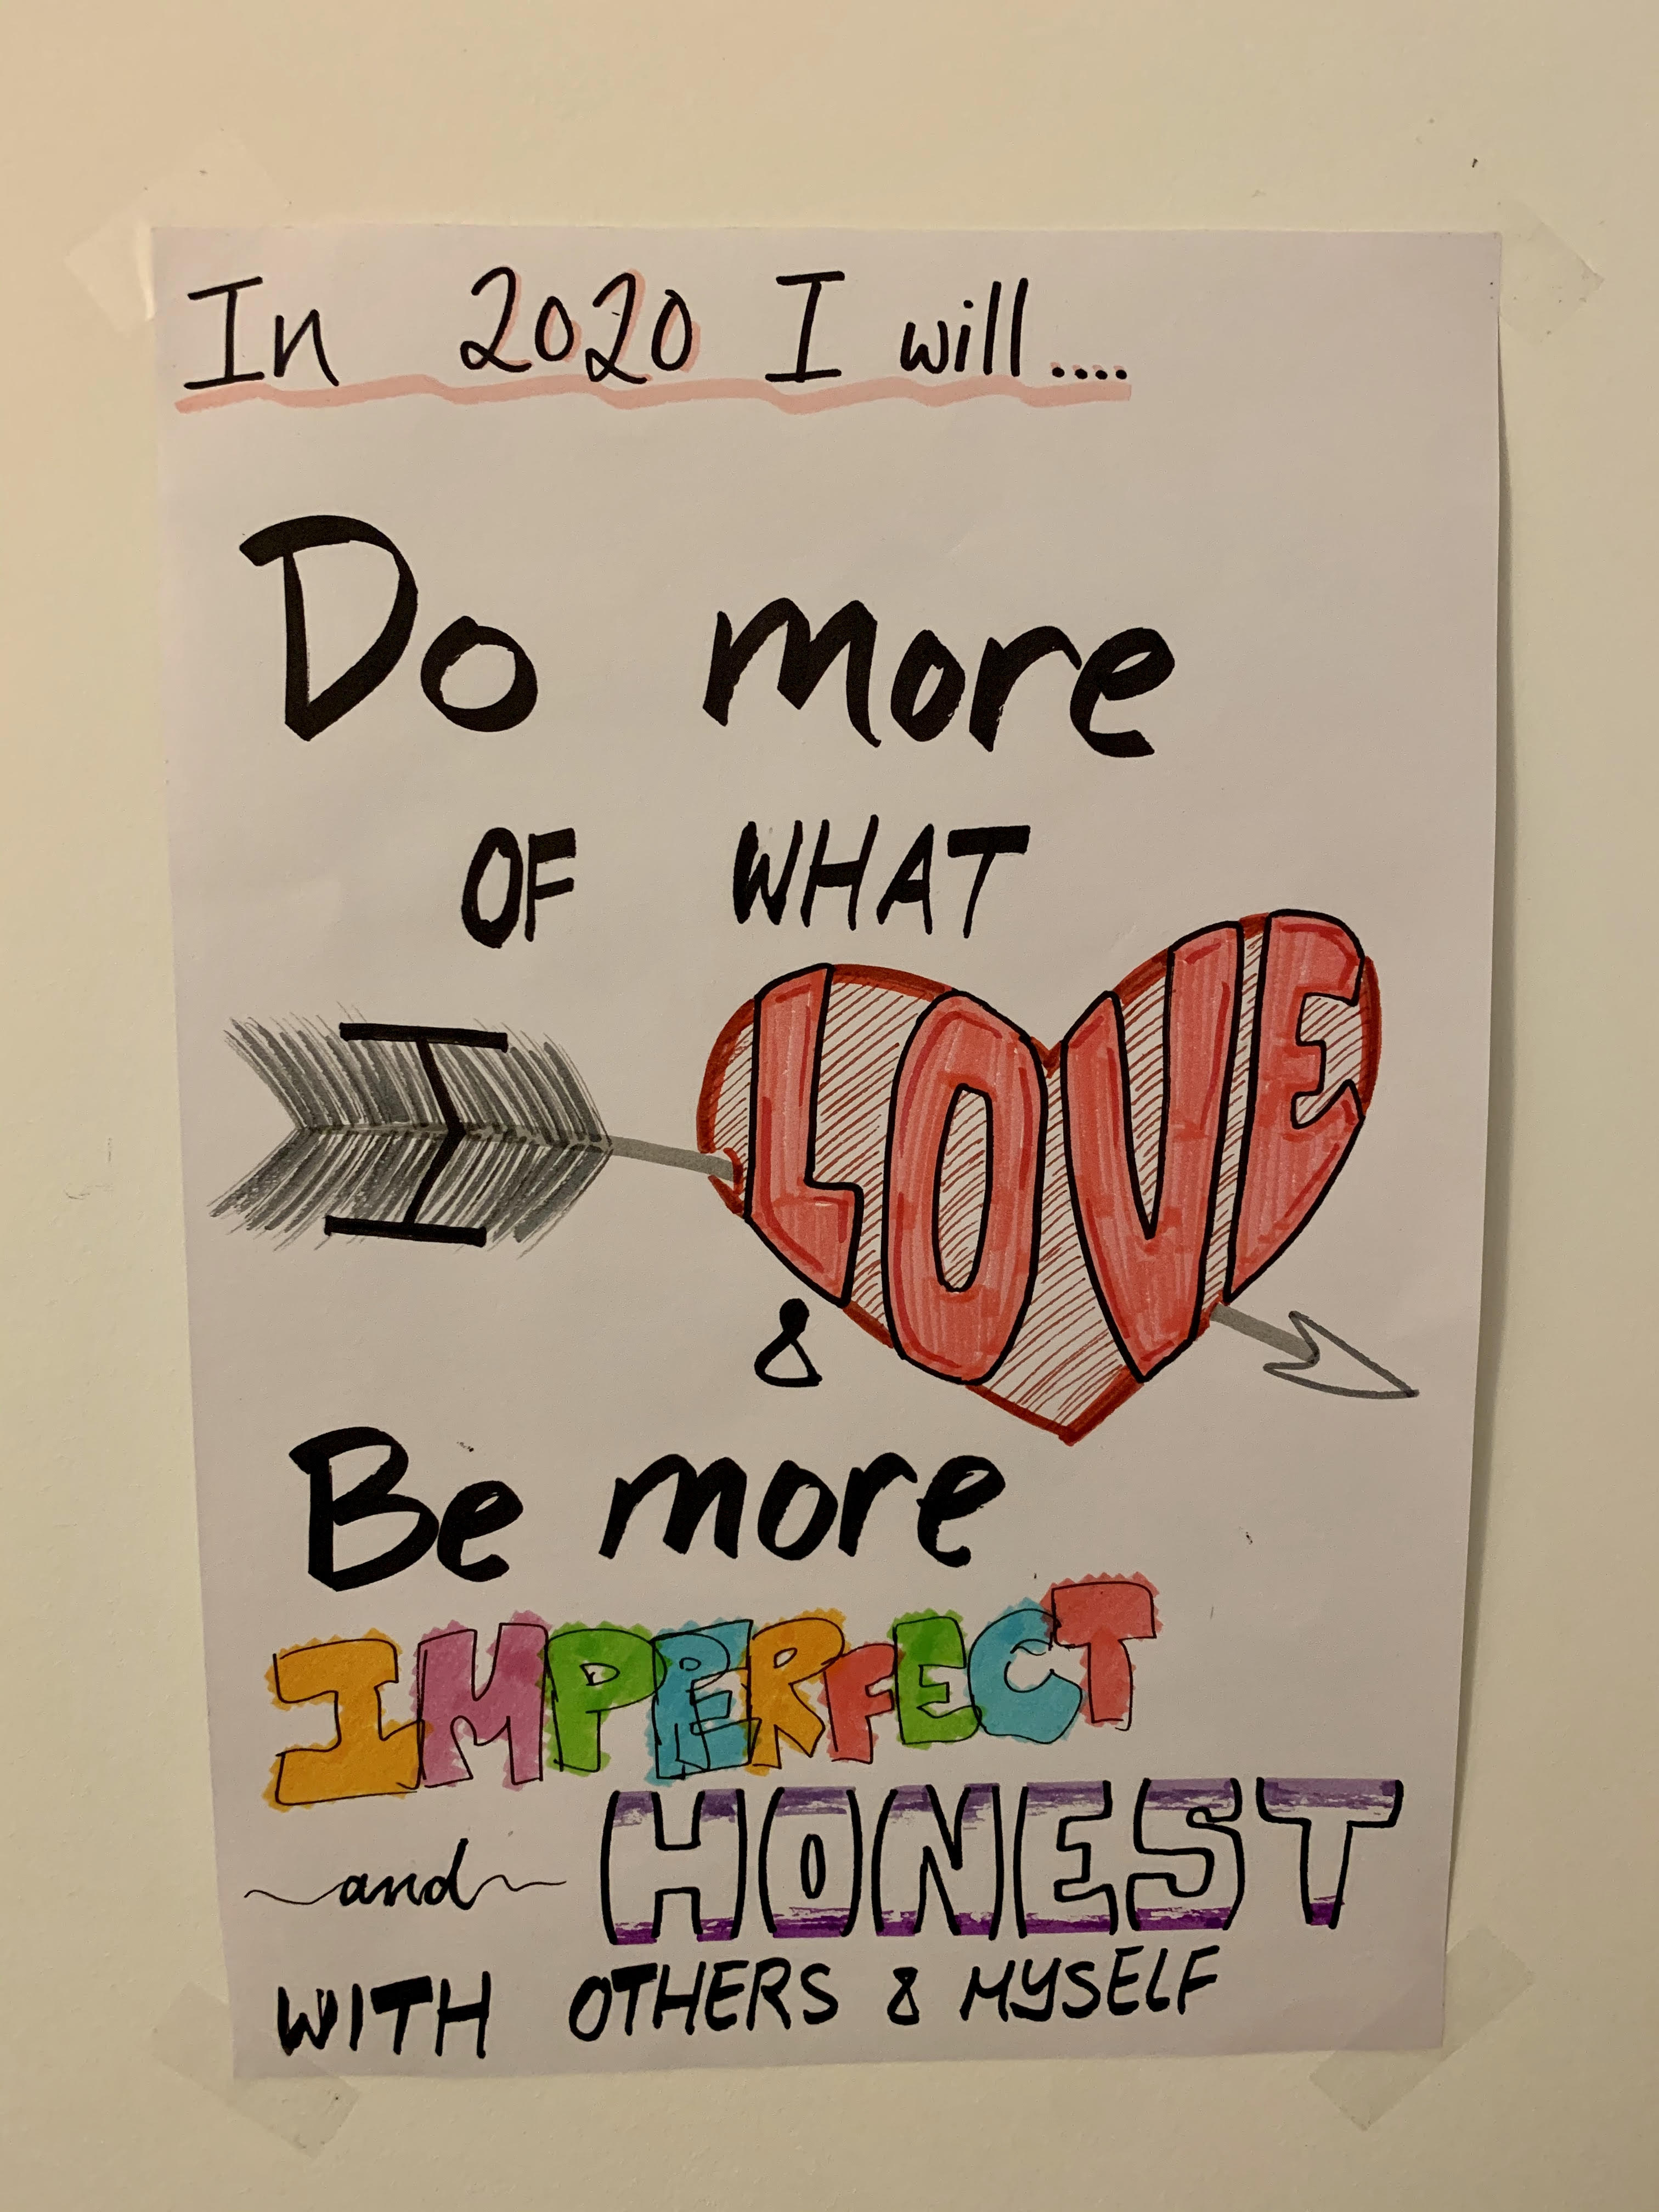 In 2020 I will....
Do more
OF WHAT
I LOVE
&
Be more
IMPERFECT
and HONEST
WITH OTHERS & MYSELF